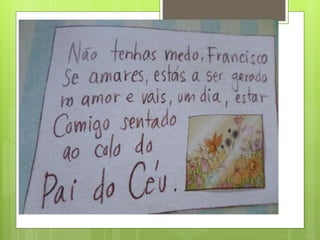 Não tenhas medo, Francisco
Se amares, estás a ser gerado
no amor e vais, um dia, estar
Comigo sentado
ao colo do
Pai do Céu.